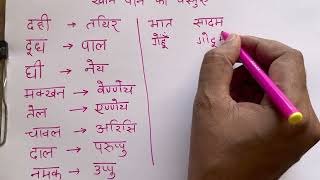 खाने पीने की वस्तुएँ
दही → तयिर
दूध → पाल
घी → नेय
मक्खन → वेण्णेय
तेल → एण्णेय
चावल → अरिसि
दाल → परुप्पु
नमक → उप्पु
भात सादम
गेहूँ गोदू